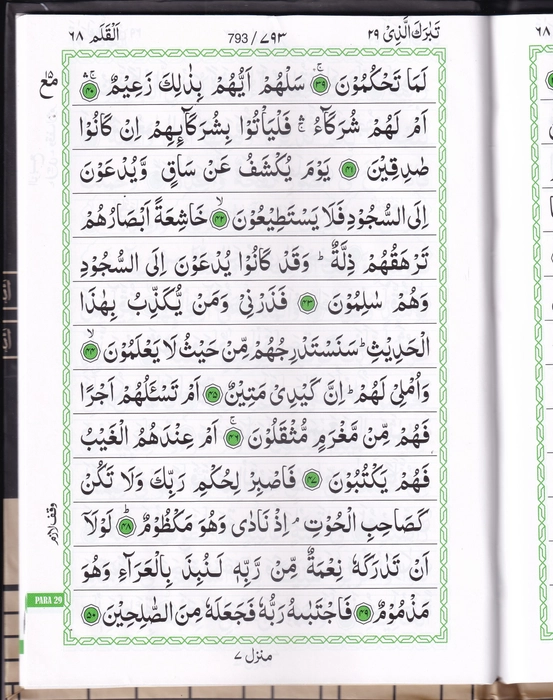 تَبٰرَكَ الَّذِيْ ٢٩
793 / ٧٩٣
اَلْقَلَم ٦٨
لَمَا تَحْكُمُوْنَ ۚ ﴿٣٩﴾ سَلْهُمْ اَيُّهُمْ بِذٰلِكَ زَعِيْمٌ ۚۛ ﴿٤٠﴾
اَمْ لَهُمْ شُرَكَآءُ ۚۛ فَلْيَاْتُوْا بِشُرَكَآىِٕهِمْ اِنْ كَانُوْا
صٰدِقِيْنَ ﴿٤١﴾ يَوْمَ يُكْشَفُ عَنْ سَاقٍ وَّيُدْعَوْنَ
اِلَى السُّجُوْدِ فَلَا يَسْتَطِيْعُوْنَ ۙ ﴿٤٢﴾ خَاشِعَةً اَبْصَارُهُمْ
تَرْهَقُهُمْ ذِلَّةٌ ؕ وَقَدْ كَانُوْا يُدْعَوْنَ اِلَى السُّجُوْدِ
وَهُمْ سٰلِمُوْنَ ﴿٤٣﴾ فَذَرْنِيْ وَمَنْ يُّكَذِّبُ بِهٰذَا
الْحَدِيْثِ ؕ سَنَسْتَدْرِجُهُمْ مِّنْ حَيْثُ لَا يَعْلَمُوْنَ ۙ ﴿٤٤﴾
وَاُمْلِيْ لَهُمْ ؕ اِنَّ كَيْدِيْ مَتِيْنٌ ﴿٤٥﴾ اَمْ تَسْـَٔلُهُمْ اَجْرًا
فَهُمْ مِّنْ مَّغْرَمٍ مُّثْقَلُوْنَ ۚ ﴿٤٦﴾ اَمْ عِنْدَهُمُ الْغَيْبُ
فَهُمْ يَكْتُبُوْنَ ﴿٤٧﴾ فَاصْبِرْ لِحُكْمِ رَبِّكَ وَلَا تَكُنْ
كَصَاحِبِ الْحُوْتِ ۘ اِذْ نَادٰى وَهُوَ مَكْظُوْمٌ ؕ ﴿٤٨﴾ لَوْلَاۤ
اَنْ تَدٰرَكَهٗ نِعْمَةٌ مِّنْ رَّبِّهٖ لَنُبِذَ بِالْعَرَآءِ وَهُوَ
مَذْمُوْمٌ ﴿٤٩﴾ فَاجْتَبٰىهُ رَبُّهٗ فَجَعَلَهٗ مِنَ الصّٰلِحِيْنَ ﴿٥٠﴾
مع
وقف لازم
PARA 29
منزل ٧
٦٨